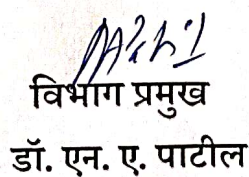 विभाग प्रमुख
डॉ. एन. ए. पाटील